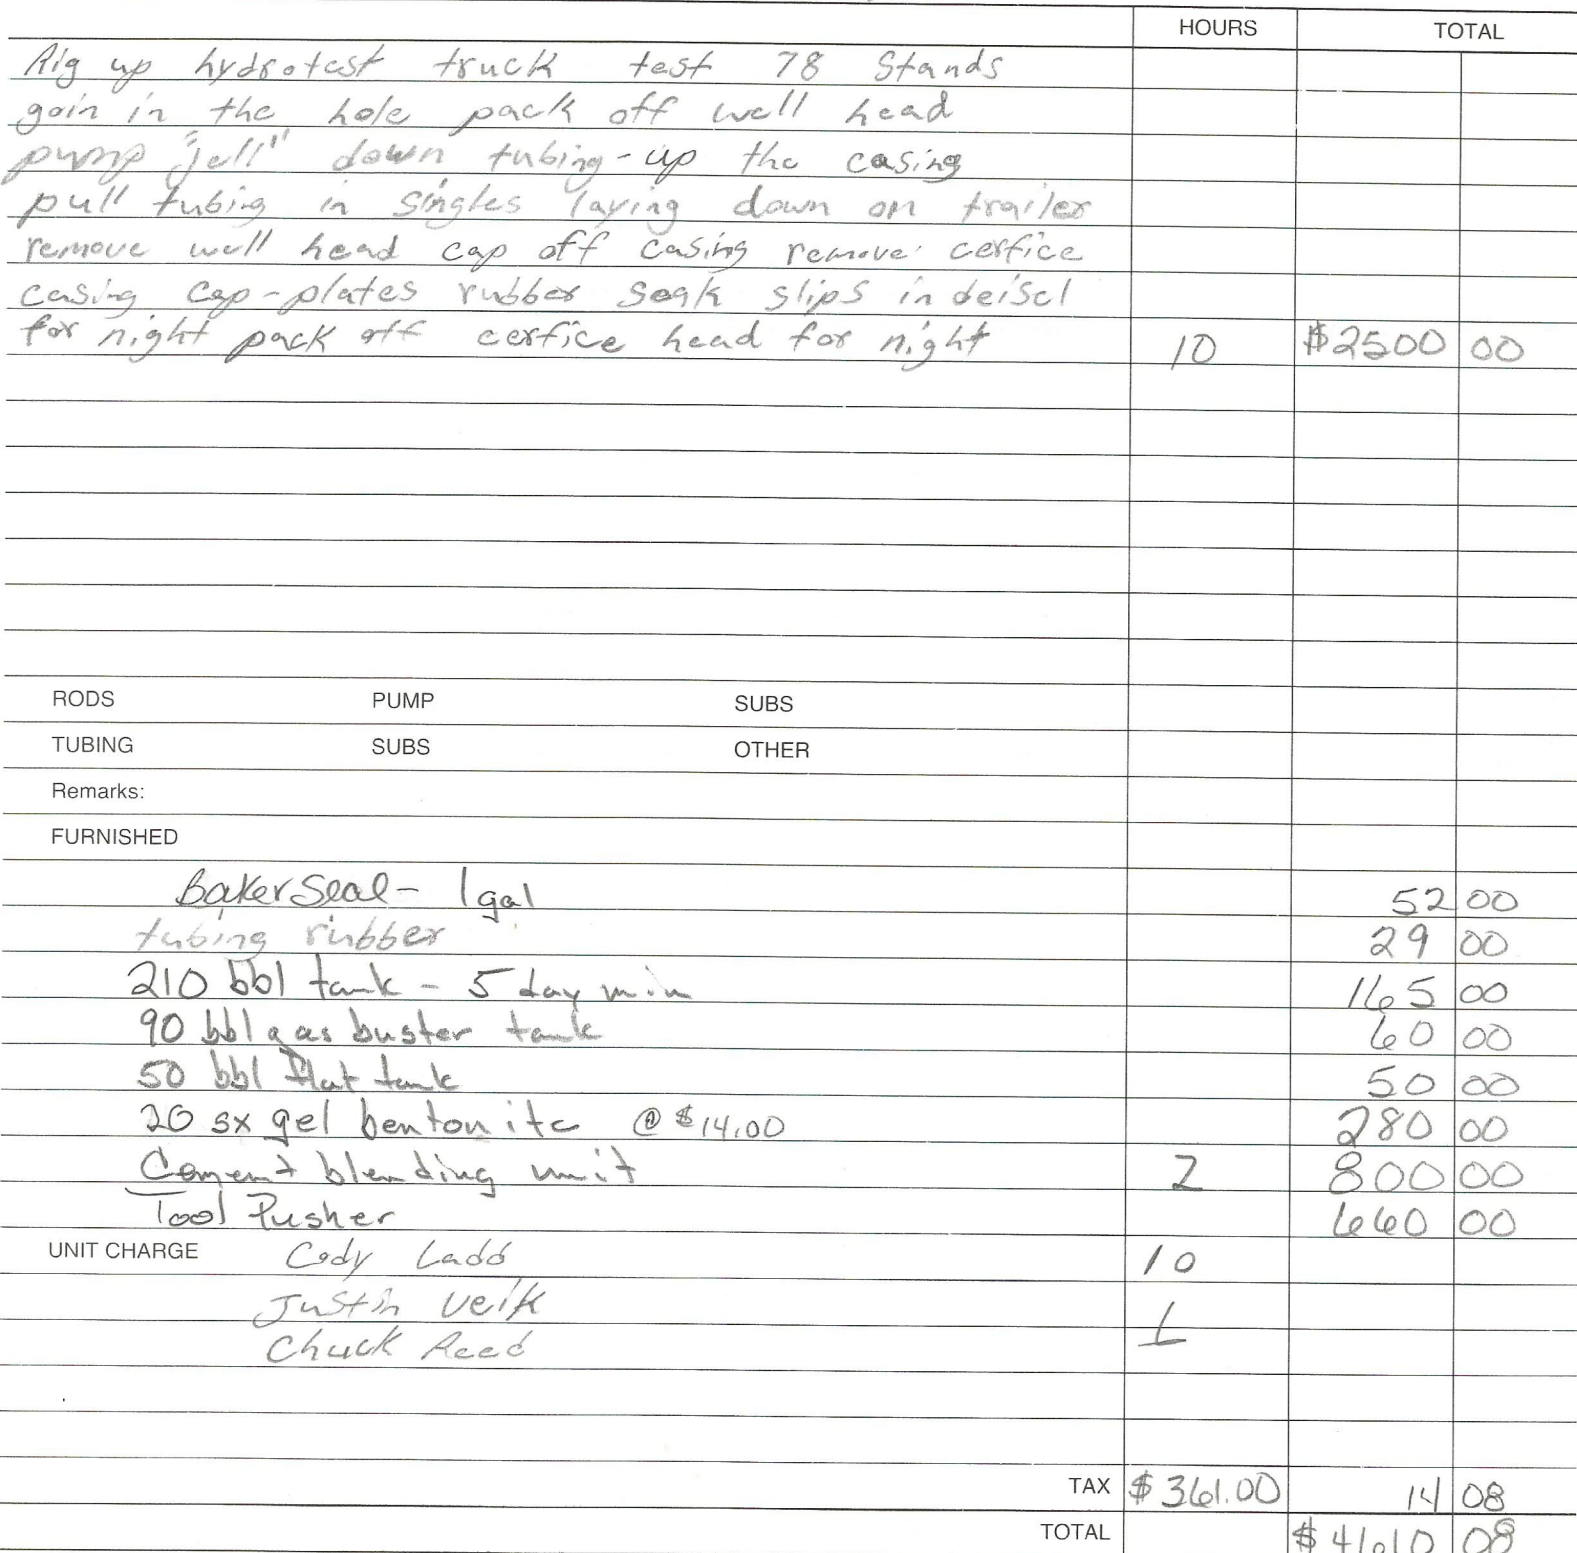 HOURS TOTAL
Rig up hydrotest truck test 78 Stands
goin in the hole pack off well head
pump "jell" down tubing - up the casing
pull tubing in singles laying down on trailer
remove well head cap off casing remove cerfice
casing cap-plates rubber soak slips in deisel
for night pack off cerfice head for night 10 $2500 00
RODS PUMP SUBS
TUBING SUBS OTHER
Remarks:
FURNISHED
BakerSeal - 1 gal 52 00
tubing rubber 29 00
210 bbl tank - 5 day min 165 00
90 bbl gas buster tank 60 00
50 bbl flat tank 50 00
20 sx gel bentonite @ $14.00 280 00
Cement blending unit 2 800 00
Tool Pusher 660 00
UNIT CHARGE Cody Ladd 10
Justin Veik
Chuck Reed
TAX $361.00 14 08
TOTAL $4610 08